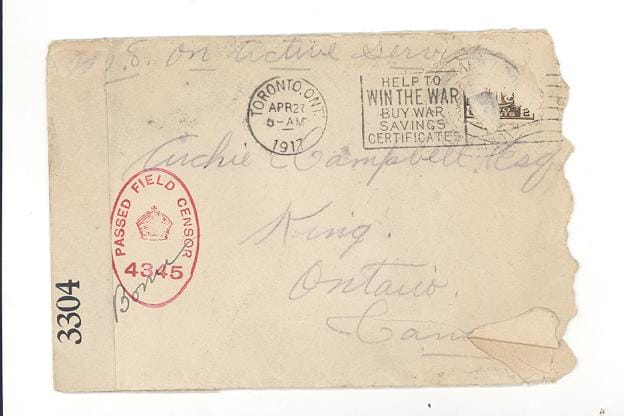 8. On Active Service
TORONTO, ONT.
APR 27
5-AM
1917
HELP TO
WIN THE WAR
BUY WAR
SAVINGS
CERTIFICATES
Archie Campbell, Esq
King.
Ontario.
PASSED FIELD CENSOR
4345
3304